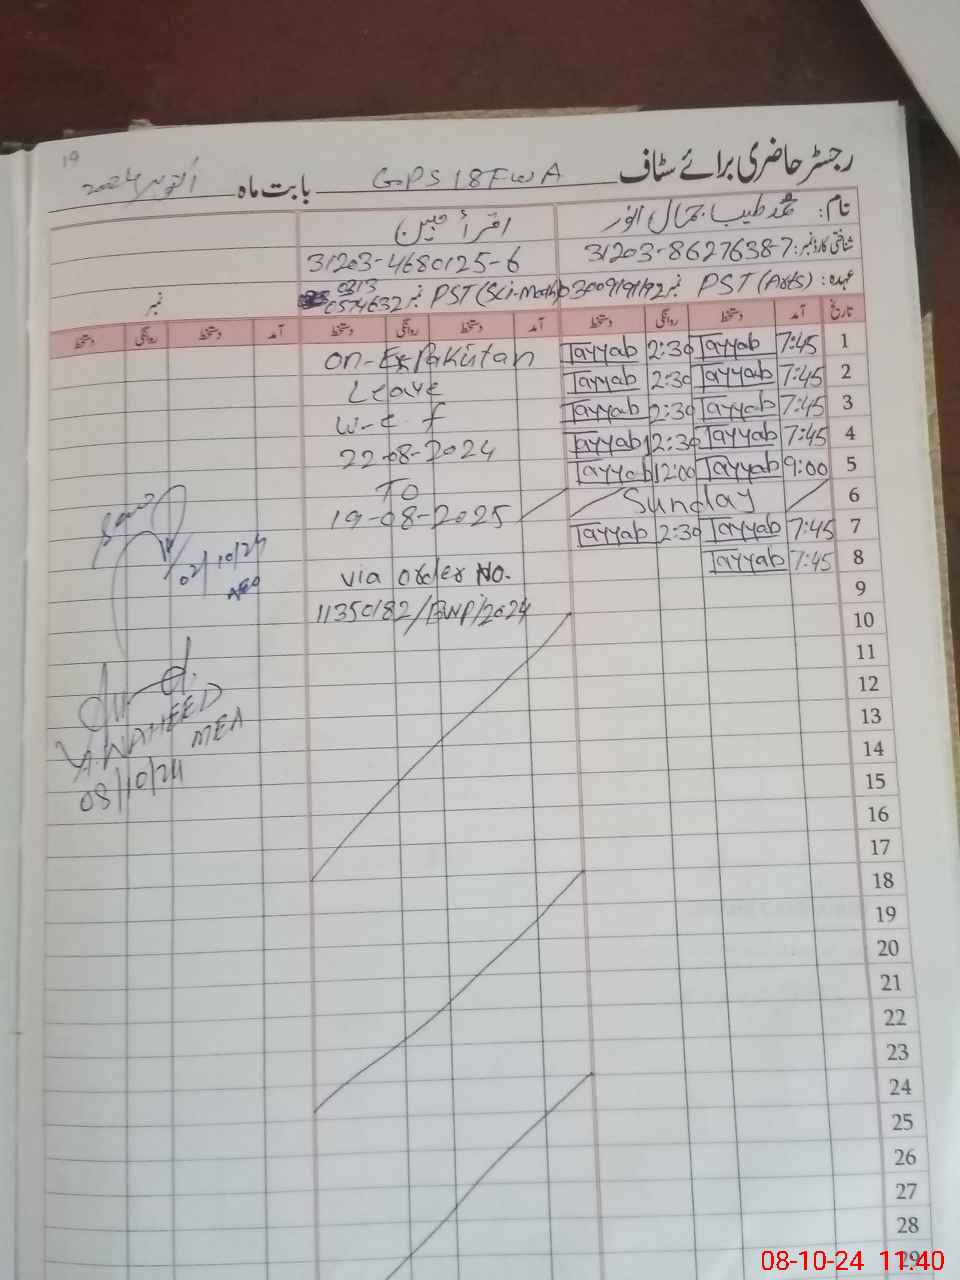 19
رجسٹر حاضری برائے سٹاف GPS 18 FWA بابت ماہ اکتوبر 2024
نام: محمد طیب جمال انور
اقرأ مبین
شناختی کارڈ نمبر: 31203-8627638-7
31203-4680125-6
عہدہ: PST (Arts) نمبر 03009191192
PST (Sci-Math) نمبر 0313 0574632
نمبر
تاریخ آمد دستخط روانگی دستخط آمد دستخط روانگی دستخط آمد دستخط روانگی دستخط
1 7:45 Tayyab 2:30 Tayyab
2 7:45 Tayyab 2:30 Tayyab
3 7:45 Tayyab 2:30 Tayyab
4 7:45 Tayyab 12:30 Tayyab
5 9:00 Tayyab 12:00 Tayyab
6 Sunday
7 7:45 Tayyab 2:30 Tayyab
8 7:45 Tayyab
9
10
11
12
13
14
15
16
17
18
19
20
21
22
23
24
25
26
27
28
29
on-Ex Pakistan
Leave
w-e f
22-08-2024
TO
19-08-2025
via order No.
11350182/BWP/2024
02/10/24
AEO
A.WAHEED
MEA
08/10/24
08-10-24 11:40